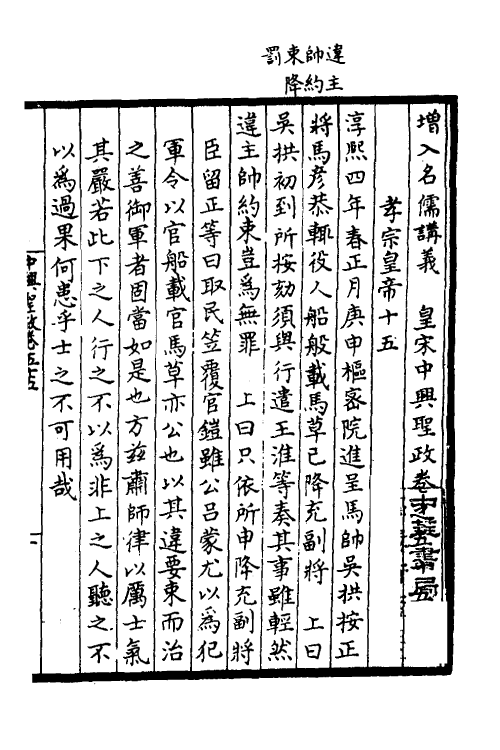 違主
帥約
束降
罰
增入名儒講義　皇宋中興聖政卷
孝宗皇帝十五
淳熙四年春正月庚申樞密院進呈馬帥吳拱按正
將馬彥恭輒役人船般載馬草已降充副將　上曰
吳拱初到所按劾須與行遣王淮等奏其事雖輕然
違主帥約束豈為無罪　上曰只依所申降充副將
臣留正等曰取民笠覆官鎧雖公呂蒙尤以為犯
軍令以官船載官馬草亦公也以其違要束而治
之善御軍者固當如是也方茲肅師律以厲士氣
其嚴若此下之人行之不以為非上之人聽之不
以為過果何患乎士之不可用哉
中興聖政卷五十五
一